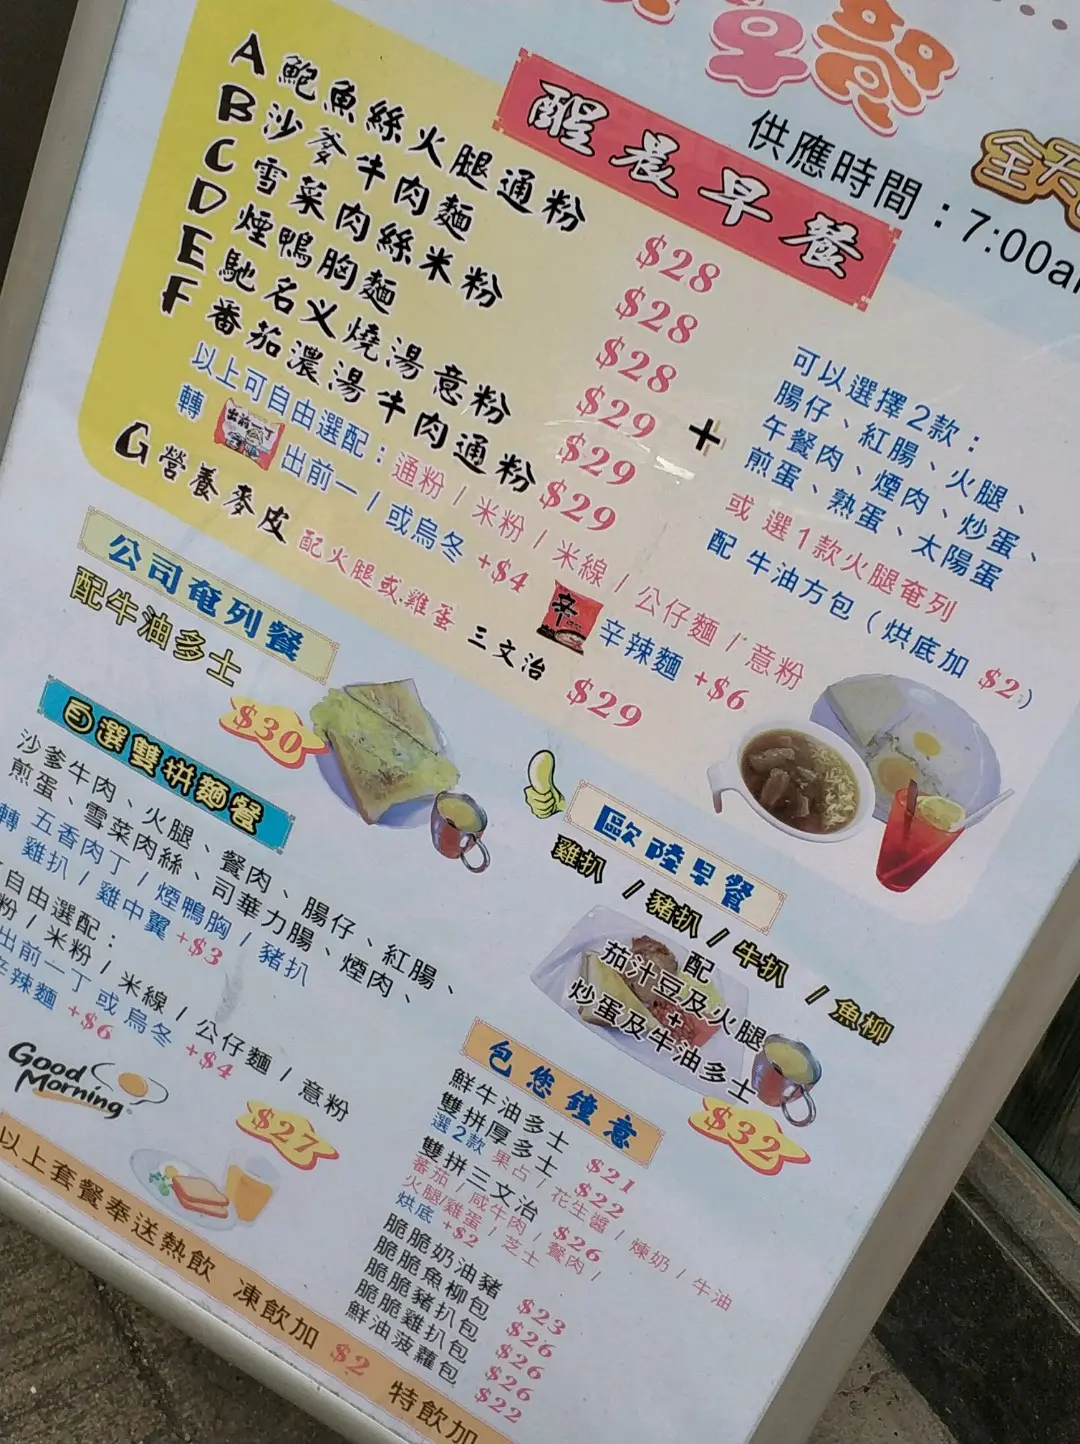 早餐
供應時間：7:00a
全天
醒晨早餐
A 鮑魚絲火腿通粉 $28
B 沙爹牛肉麵 $28
C 雪菜肉絲米粉 $28
D 煙鴨胸麵 $29
E 馳名义燒湯意粉 $29
F 番茄濃湯牛肉通粉 $29
以上可自由選配：通粉 / 米粉 / 米線 / 公仔麵 / 意粉
轉 出前一丁或烏冬 +$4 辛辣麵 +$6
G 營養麥皮 配火腿或雞蛋 三文治 $29
+
可以選擇2款：
腸仔、紅腸、火腿、
午餐肉、煙肉、炒蛋、
煎蛋、熟蛋、太陽蛋
或 選1款火腿奄列
配 牛油方包（烘底加 $2）
公司奄列餐
配牛油多士
$30
自選雙拼麵餐
沙爹牛肉、火腿、餐肉、腸仔、紅腸、
煎蛋、雪菜肉絲、司華力腸、煙肉、
轉 五香肉丁 / 煙鴨胸 / 豬扒
雞扒 / 雞中翼 +$3
自由選配：
粉 / 米粉 / 米線 / 公仔麵 / 意粉
出前一丁或烏冬 +$4
辛辣麵 +$6
Good Morning
$27
歐陸早餐
雞扒 / 豬扒 / 牛扒 / 魚柳
配
茄汁豆及火腿
+
炒蛋及牛油多士
$32
包您鐘意
鮮牛油多士 $21
雙拼厚多士 $22
選2款 果占 / 花生醬 / 煉奶 / 牛油
雙拼三文治 $26
蕃茄 / 咸牛肉 / 餐肉 /
火腿 / 雞蛋 / 芝士
烘底 +$2
脆脆奶油豬 $23
脆脆魚柳包 $26
脆脆豬扒包 $26
脆脆雞扒包 $26
鮮油菠蘿包 $22
以上套餐奉送熱飲 凍飲加 $2 特飲加